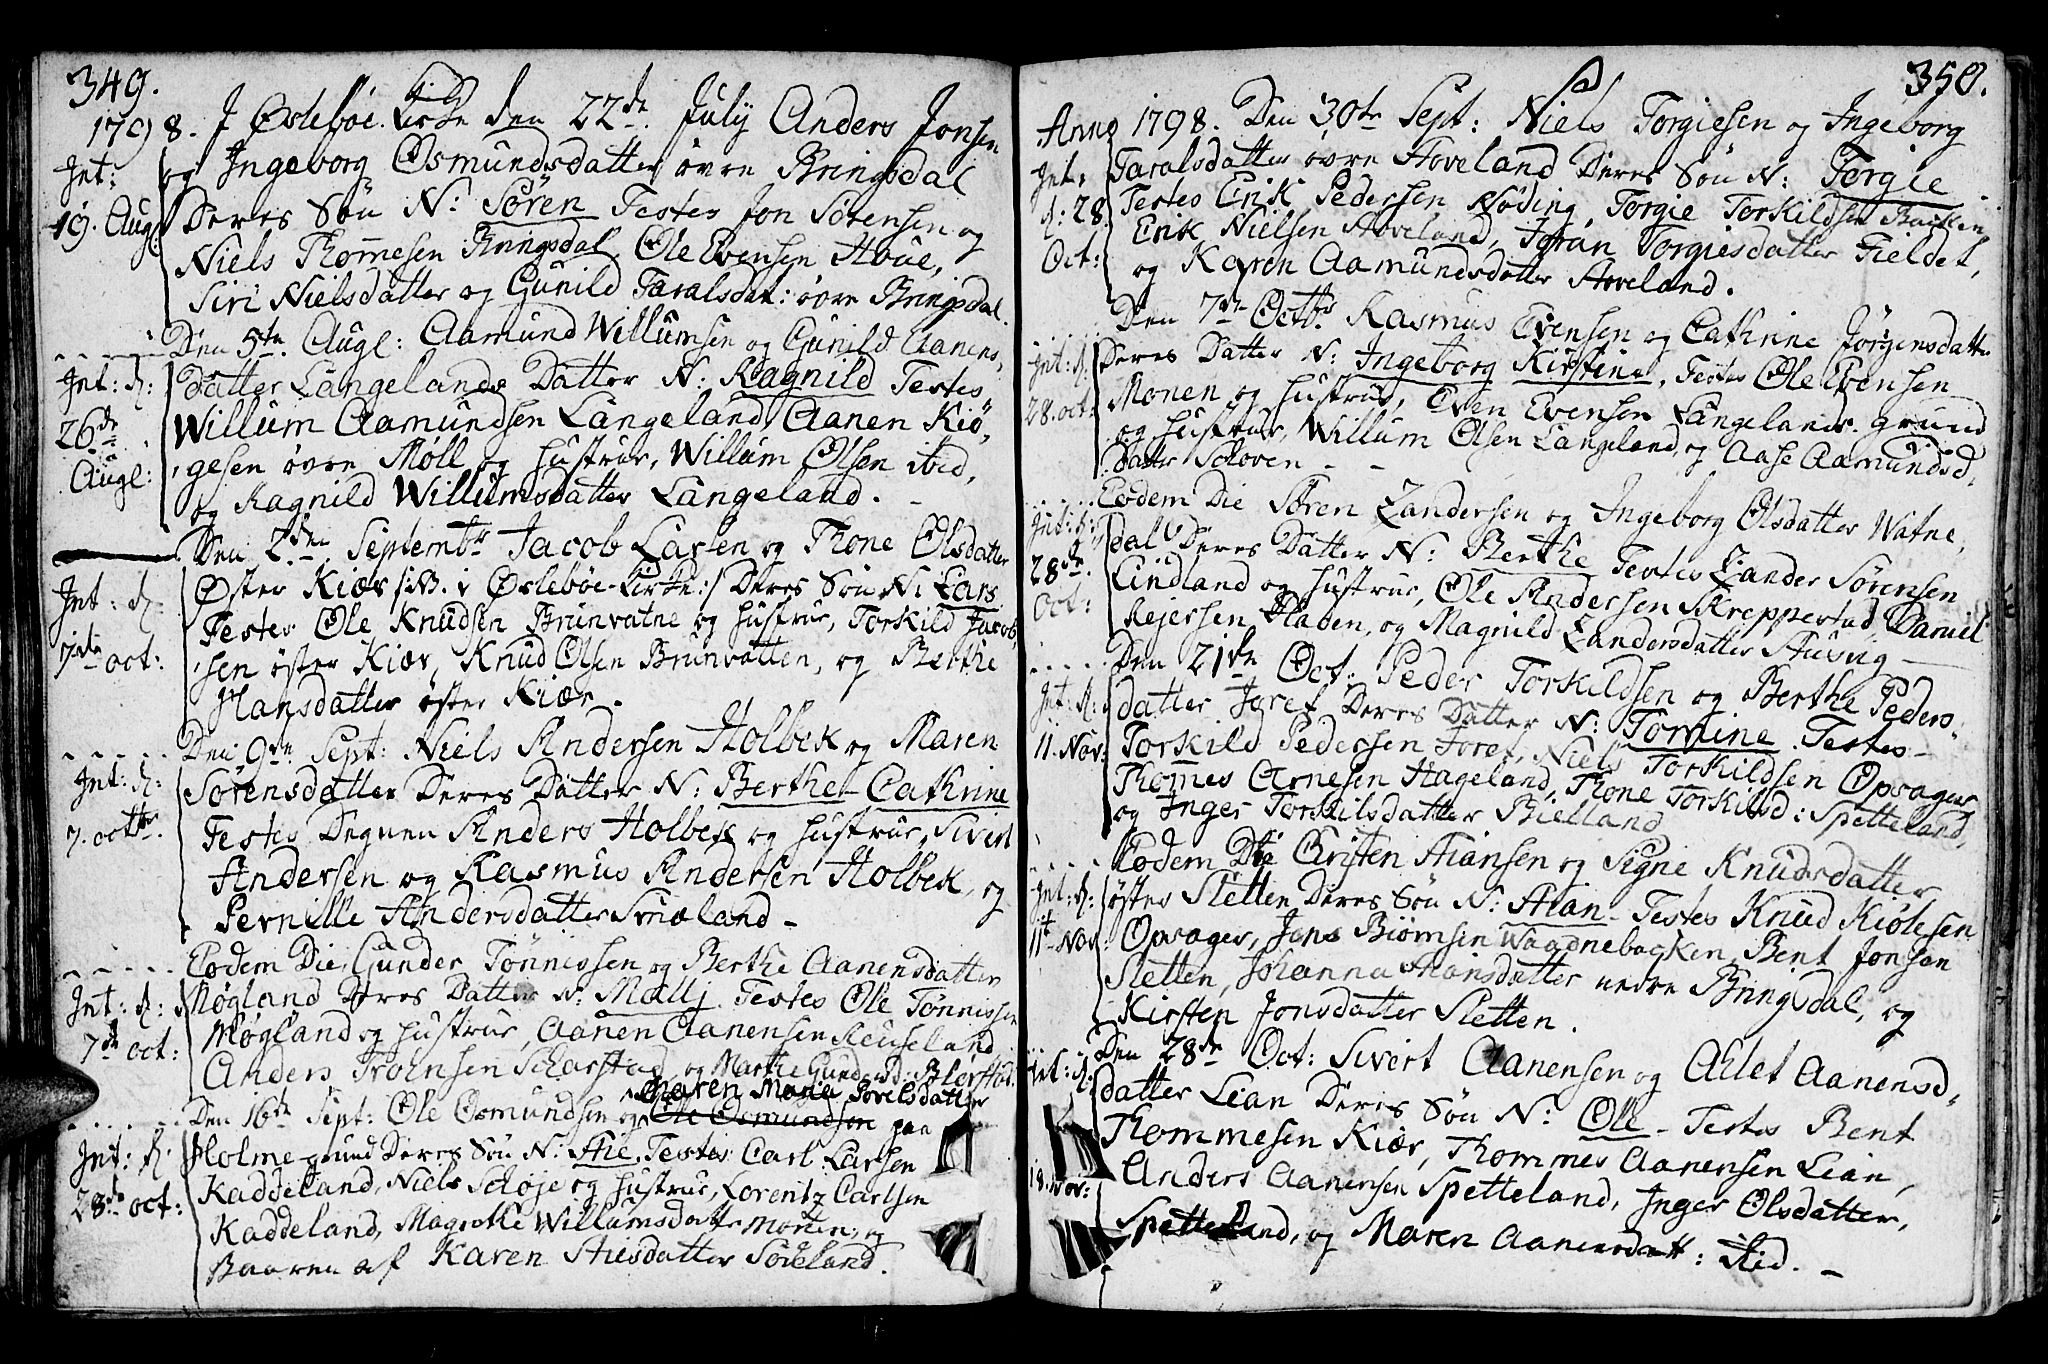 349.
1798. J Øslebøe Kirke den 22de July Anders Jonsen
Int: og Ingeborg Osmundsdatter øvre Bringsdal
19. Augl: Deres Søn N: Søren Testes Jon Sørensen og
Niels Thomesen Bringsdal, Ole Evensen Houe,
Siri Nielsdatter og Gunild Taralsdat: øvre Bringsdal.
Den 5te Augl: Aamund Willumsen og Gunild Aanens,
Int: d: datter Langelands Datter N: Ragnild Testes
26de Willum Aamundsen Langeland, Aanen Kiø,
Augl: gesen øvre Møll og hustrue, Willum Olsen ibid,
og Ragnild Willumsdatter Langeland.
Den 2den Septembr Jacob Larsen og Thone Olsdatter
Int: d: Øster Kiær /:NB. i Øslebøe-Kirke:/ Deres Søn N: Lars
7de oct: Testes Ole Knudsen Brunvatne og hustrue, Torkild Jacob,
sen øster Kiær, Knud Olsen Brunvatten, og Berthe
Hansdatter øster Kiær.
Den 9de Sept: Niels Andersen Holbek og Maren
Int: d: Sørensdatter Deres Datter N: Berthe Cathrine
7. octbr. Testes Degnen Anders Holbek og hustrue, Sivert
Andersen og Rasmus Andersen Holbek, og
Pernille Andersdatter Smæland -
Eodem Die, Gunder Tønnissen og Berthe Aanensdatter
Int: d: Møgland Deres Datter N: Mallj Testes Ole Tønnissen
7de oct: Møgland og hustrue, Aanen Aanensen
Anders og Marthe
Maren Marie Povelsdatter
Den 16de Sept: Ole Osmundsen og Ole Osmundsen paa
Int: d: Holme-grund Deres Søn N: Stie Testes Carl Larsen
28de oct: Kaddeland, Niels Schøje og hustrue, Lorentz Carlsen
Kaddeland, Magrethe Willumsdatter Monen, og
Baaren af Karen Stiesdatter Søreland.
350.
Anno 1798. Den 30te Sept: Niels Torgiesen og Ingeborg
Int: Taralsdatter øvre Hoveland Deres Søn N: Torgie
d: 28 Testes Erik Pedersen Nøding, Torgie Torkildsen Backen
Oct: Erik Nielsen Hoveland, Joran Torgiesdatter Fieldet,
og Karen Aamundsdatter Hoveland.
Den 7de Octbr Rasmus Evensen og Cathrine Jørgensdatter
Int: d. Deres Datter N: Ingeborg Kirstine, Testes Ole Evensen
28. oct: Monen og hustrue, Even Evensen Langelands grund
og hustrue, Willum Olsen Langeland, og Aase Aamundsd,
datter Scloven - -
Eodem Die Søren Zandersen og Ingeborg Olsdatter Watne,
Int: d: dal Deres Datter N: Berthe Testes Zander Sørensen
28de Lindland og hustrue, Ole Andersen Skreppestad, Daniel
Oct: Rejersen Hladen, og Magnild Zandersdatter
Den 21de Oct: Peder Torkildsen og Berthe Peders,
Int: d: datter Joref Deres Datter N: Tomine Testes
11. Nov: Torkild Pedersen Joref, Niels Torkildsen Opsager,
Thomes Arnesen Hageland, Thone Torkilsd: Spetteland,
og Inger Torkilsdatter Bielland
Eodem Die Cristen Stiansen og Signe Knudsdatter
Int: d: øster Sletten Deres Søn N: Stian - Testes Knud Kiølesen
11te Nov: Opsager, Jens Biørnsen Waadnebacken, Bent Jonsen
Sletten, Johanna Hansdatter nedre Bringsdal, og
Kirsten Jonsdatter Sletten.
Den 28de Oct: Sivert Aanensen og Ahlet Aanensd,
Int: d: datter Lian Deres Søn N: Ole - Testes Bent
Thommesen Kiær, Thommes Aanensen Lian,
18. Nov: Anders Aanensen Spetteland, Inger Olsdatter,
Spetteland, og Maren Aanensdatt: ibid. -